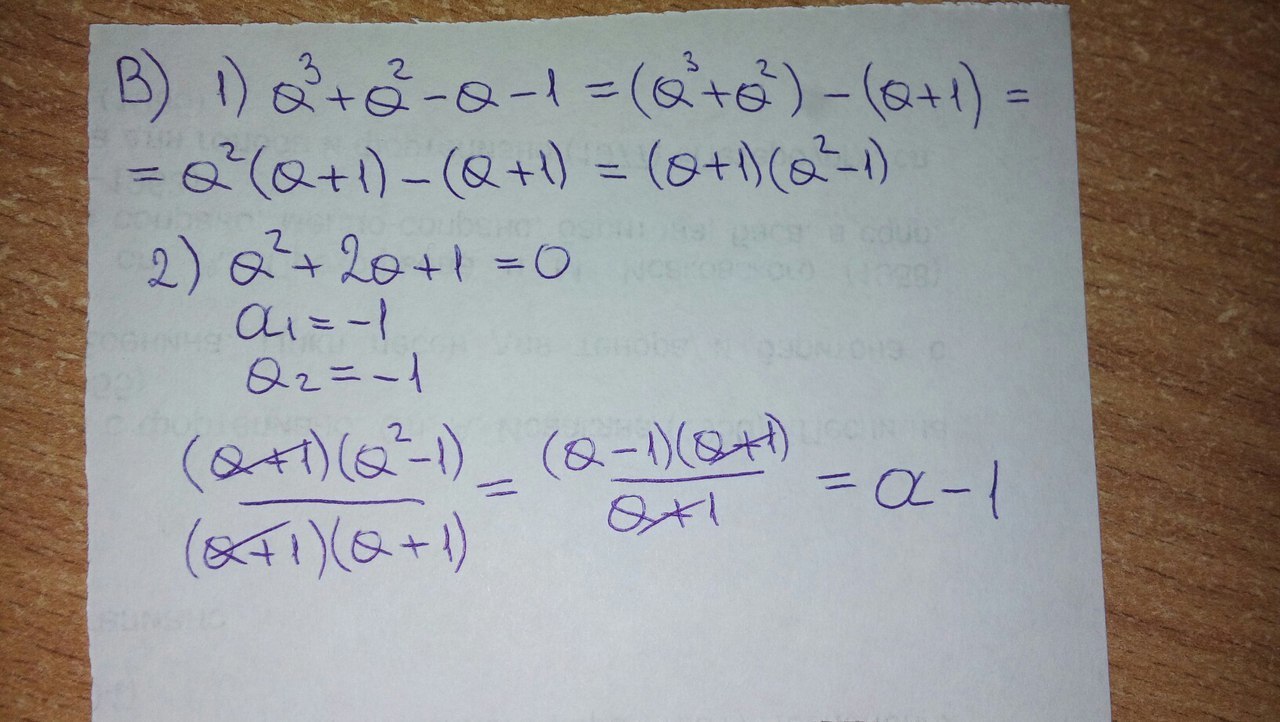 В) 1) a³+a²-a-1 = (a³+a²) - (a+1) =
= a²(a+1) - (a+1) = (a+1)(a²-1)
2) a²+2a+1 = 0
a₁ = -1
a₂ = -1
(a+1)(a²-1)/(a+1)(a+1) = (a-1)(a+1)/a+1 = a-1